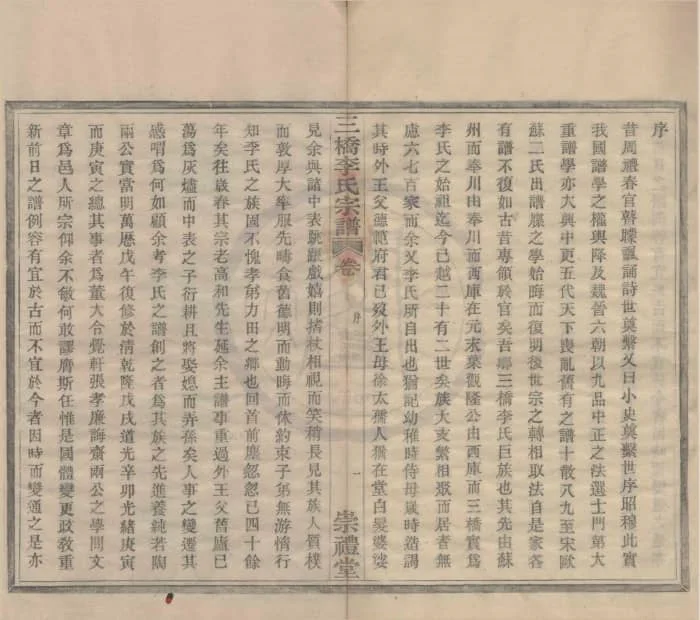 序
昔周禮春官瞽矇諷誦詩世奠繫又曰小史奠繫世序昭穆此實
我國譜學之權輿降及魏晉六朝以九品中正之法選士門第大
重譜學亦大興中更五代天下喪亂舊有之譜十散八九至宋歐
蘇二氏出譜牒之學始晦而復明後世宗之轉相取法自是家各
有譜不復如古昔專領於官矣吾鄉三橋李氏巨族也其先由蘇
州而奉川由奉川而西庫在元末葉觀隆公由西庫而三橋實爲
李氏之始祖迄今已越二十有二世矣族大支繁相聚而居者無
慮六七百家而余又李氏所自出也猶記幼稚時侍母歲時造謁
其時外王父德範府君已歿外王母徐太孺人猶在堂白髮婆娑
三橋李氏宗譜
卷
序
一
崇禮堂
見余與諸中表跳踉戲嬉則搘杖相視而笑稍長見其族人質樸
而敦厚大率服先疇食舊德明而動晦而休約束子弟無游惰行
知李氏之族固不愧孝弟力田之鄉也回首前塵忽忽已四十餘
年矣往歲春其宗老高和先生延余主譜事重過外王父舊廬已
蕩爲灰燼而中表之子衍耕且將娶媳而弄孫矣人事之變遷其
感喟爲何如顧余考李氏之譜創之者爲其族之先進養純若陶
兩公實當明萬歷戊午復修於清乾隆戊戌道光辛卯光緒庚寅
而庚寅之總其事者爲董大令覺軒張孝廉誨齋兩公之學問文
章爲邑人所宗仰余不敏何敢謬膺斯任惟是國體變更政敎重
新前日之譜例容有宜於古而不宜於今者因時而變通之是亦